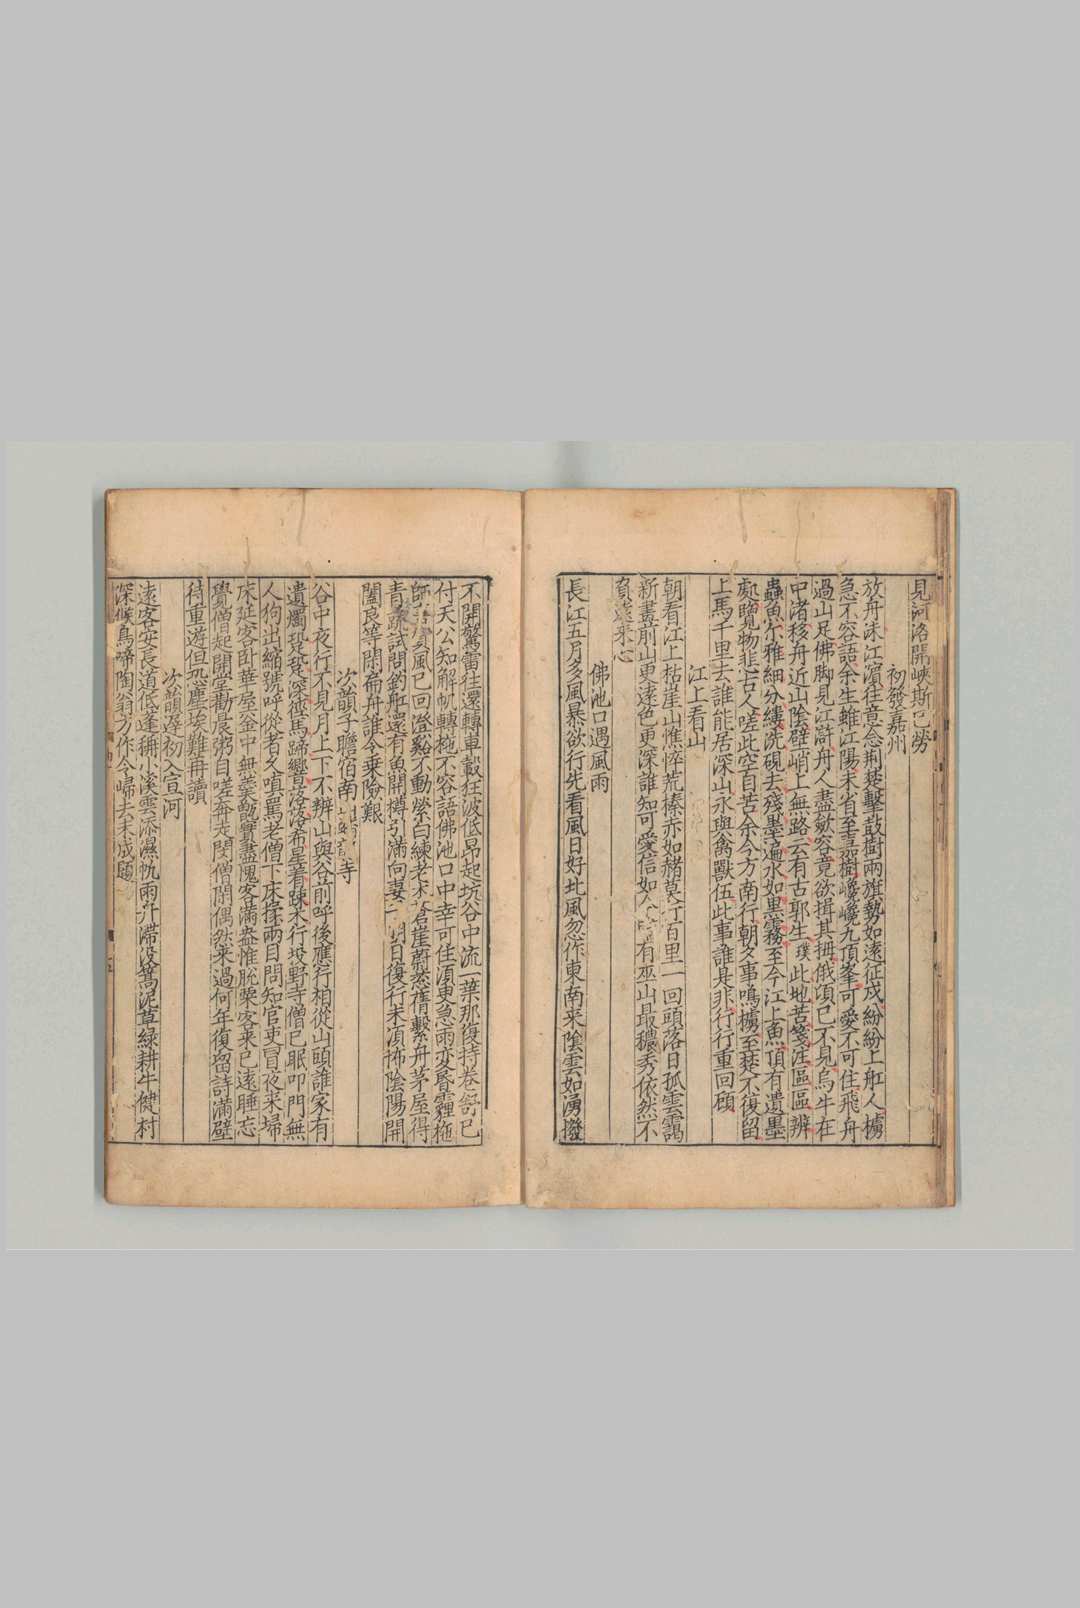 見河洛開峽斯已勞
初發嘉州
放舟沫江濱往意念荆楚擊鼓樹兩旗勢如遠征戍紛紛上舡人櫓
急不容語余生雖江陽未省至嘉樹巉巉九頂峯可愛不可住飛舟
過山足佛脚見江滸舟人盡歛容竞欲揖其拇俄頃已不見烏牛在
中渚移舟近山陰壁峭上無路云有古郭生璞此地苦箋注區區辨
蟲魚尓雅細分縷洗硯去殘墨遍水如黒霧至今江上魚頂有遺墨
處覽物悲古人嗟此空自苦余今方南行朝夕事鳴櫓至楚不復留
上馬千里去誰能居深山永與禽獸伍此事誰是非行行重回顧
江上看山
朝看江上枯崖山憔悴荒榛赤如赭莫行百里一回頭落日孤雲靄
新畫前山更遠色更深誰知可愛信如今有巫山最穠秀依然不
負遠来心
佛池口遇風雨
長江五月多風暴欲行先看風日好北風忽作東南来陰雲如湧撥
不開驚雷往還轉車轂狂波低昂起坑谷中流一葉那復持卷舒已
付天公知解帆轉柂不容語佛池口中幸可住須更急雨变昏霾柂
師喜賀風已回澄谿不動縈白練老木蒼崖蔚葱蒨繫舟茅屋得
青蔬試問釣舡還有魚開樽引滿向妻子明日復行未湏怖陰陽開
闔良等閑扁舟誰令乗險艱
次韻子瞻宿南山蟠龍寺
谷中夜行不見月上下不辨山與谷前呼後應行相從山頭誰家有
遺燭跫跫深徑馬蹄響落落稀星著踈木行投野寺僧已眠叩門無
人狗出縮號呼從者久嗔罵老僧下床揉兩目問知官吏冒夜来埽
床延客卧華屋釡中無羮甑實盡愧客滿盎惟脫粟客来已遠睡忘
覺僧起開堂勸晨粥自嗟奔走閔僧閑偶然来過何年復留詩滿壁
待重遊但恐塵埃難再讀
次韻遲初入宣河
逺客安長道低篷稱小溪雲添濕帆雨汴滯没篙泥草緑耕牛健村
深候鳥啼陶翁方作令歸去未成題